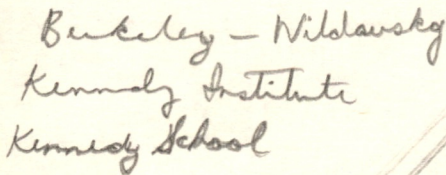 Berkeley – Wildavsky
Kennedy Institute
Kennedy School